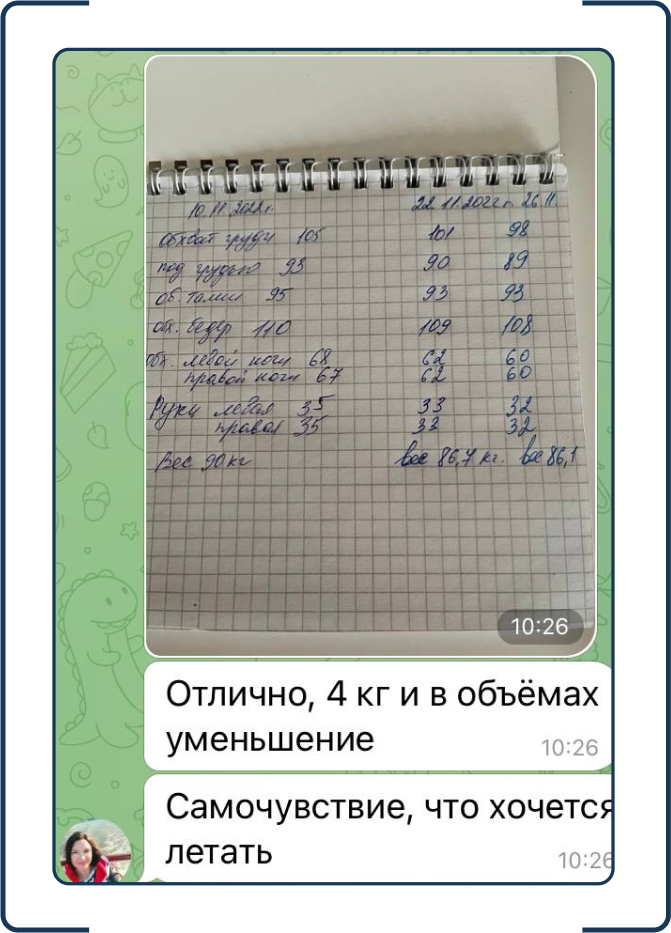 10.11.2022г. 22.11.2022г. 26.11.
обхват груди 105 101 98
под грудью 93 90 89
об. талии 95 93 93
об. бедер 110 109 108
обх. левой ноги 68 62 60
правой ноги 67 62 60
Руки левая 35 33 32
правая 35 33 32
Вес 90 кг вес 86,7 кг. вес 86,1
10:26
Отлично, 4 кг и в объёмах
уменьшение
10:26
Самочувствие, что хочется
летать
10:26